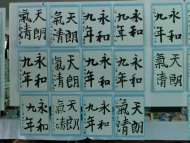 天朗氣清
永和九年
天朗氣清
永和九年
永和九年
天朗氣清
永和九年
天朗氣清
永和九年
永和九年
天朗氣清
永和九年
天朗氣清
永和九年
天朗氣清
永和九年